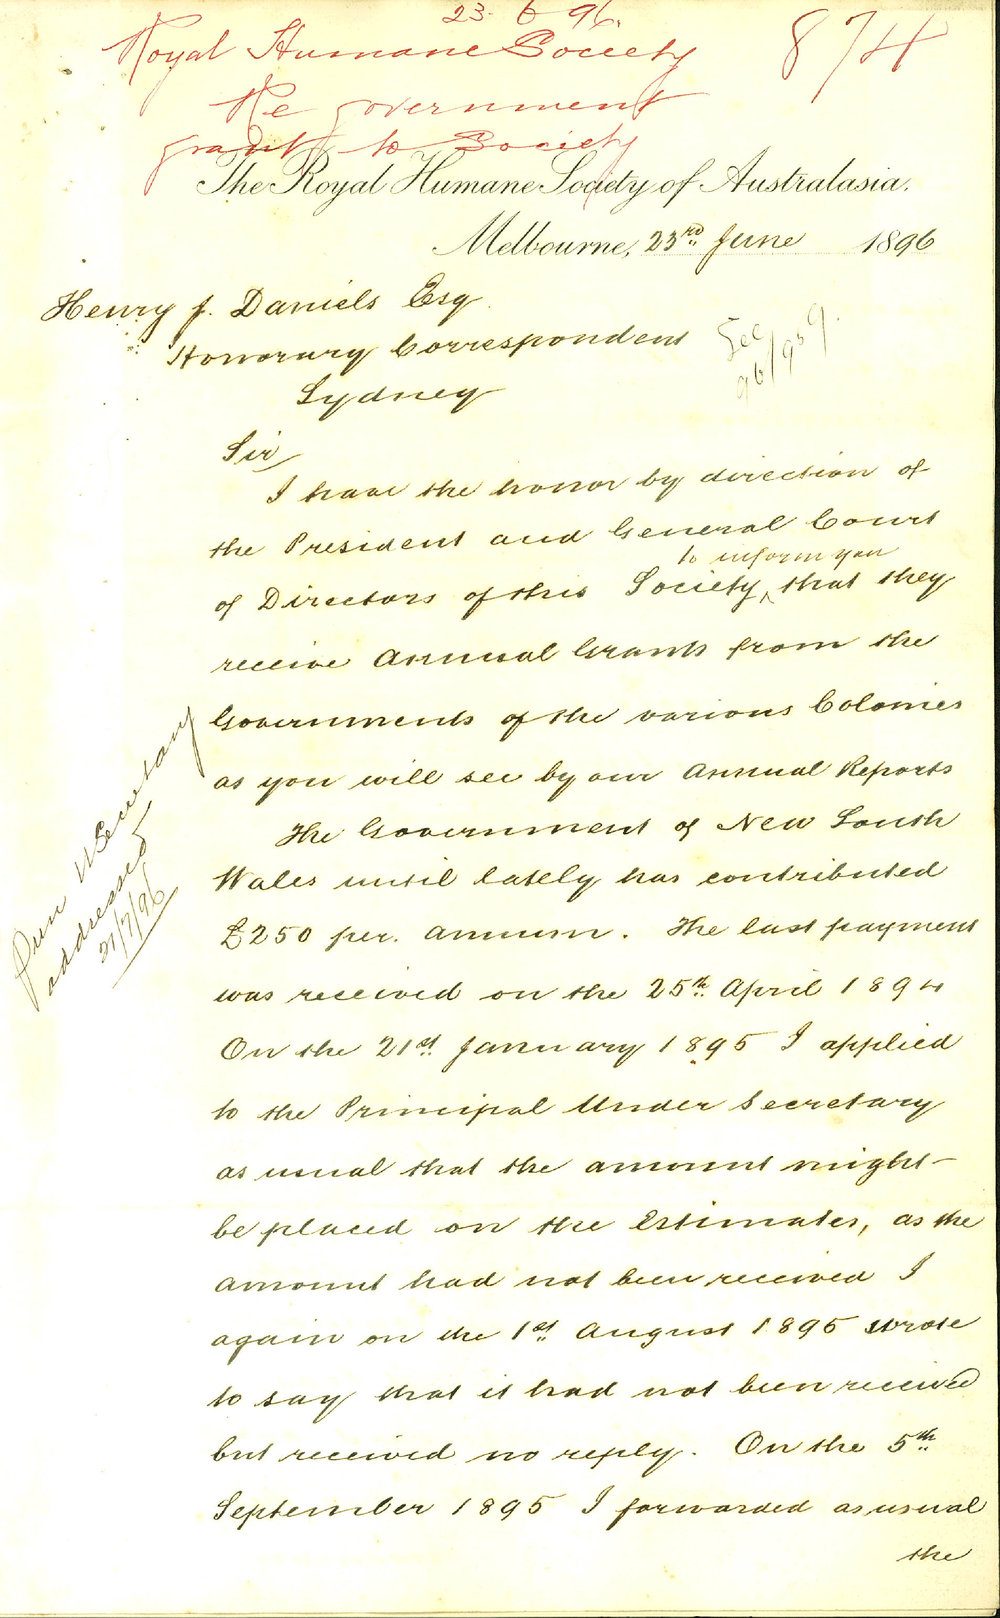 23. 6 96.
Royal Humane Society
874
Re government
grant to Society
The Royal Humane Society of Australasia.
Melbourne, 23rd June 1896
Henry J. Daniels Esq
Honorary Correspondent
Sydney
See
96/959.
Sir
I have the honor by direction of
the President and General Court
to inform you
of Directors of this Society, that they
receive Annual Grants from the
Governments of the various Colonies
as you will see by our Annual Reports
The Government of New South
Wales until lately has contributed
£250 per. annum. The last payment
was received on the 25th April 1894
On the 21st January 1895 I applied
to the Principal Under Secretary
as usual that the amount might
be placed on the Estimates, as the
amount had not been received I
again on the 1st August 1895 wrote
to say that it had not been received
but received no reply. On the 5th
September 1895 I forwarded as usual
the
Secretary
addressed
21/7/96